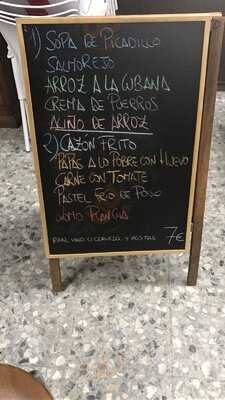 1) SOPA DE PICADILLO
SALMOREJO
ARROZ A LA CUBANA
CREMA DE PUERROS
ALIÑO DE ARROZ
2) CAZÓN FRITO
PAPAS A LO POBRE CON HUEVO
CARNE CON TOMATE
PASTEL FRIO DE POLLO
LOMO PLANCHA
PAN, VINO O CERVEZA Y POSTRE 7€